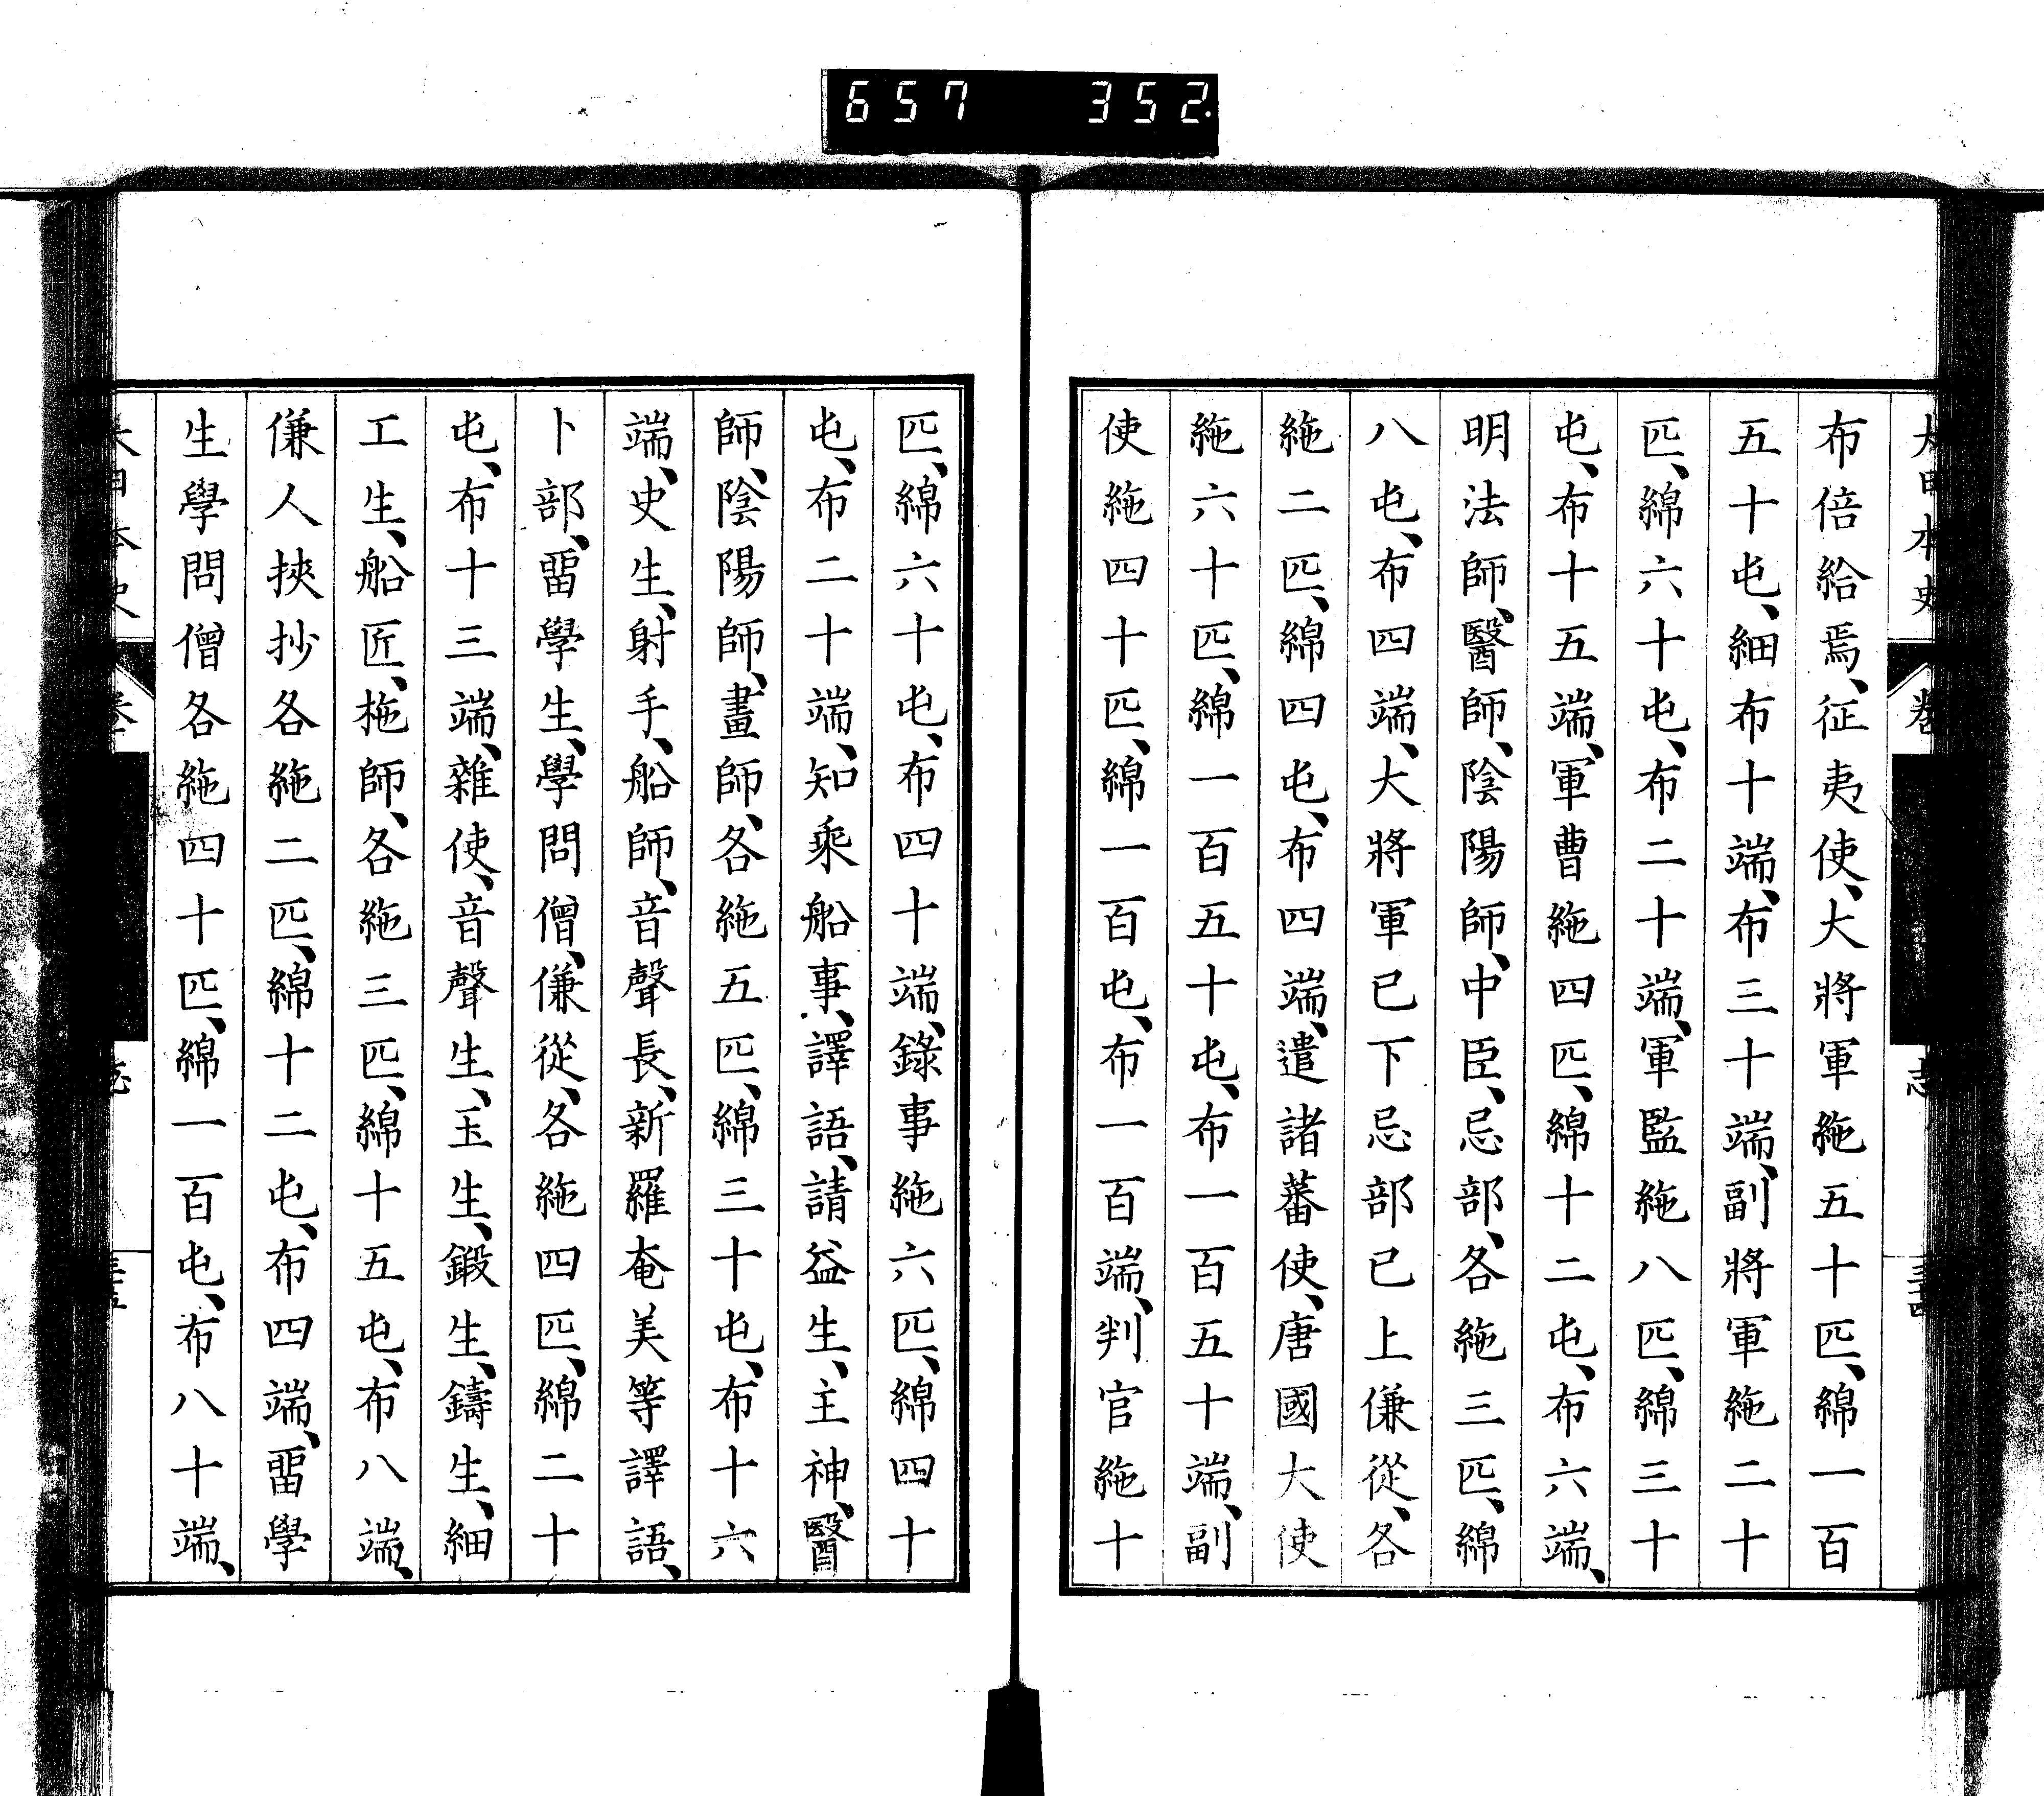 657 352
布倍給焉、征夷使、大將軍絁五十匹、綿一百
五十屯、細布十端、布三十端、副將軍絁二十
匹、綿六十屯、布二十端、軍監絁八匹、綿三十
屯、布十五端、軍曹絁四匹、綿十二屯、布六端、
明法師、醫師、陰陽師、中臣、忌部、各絁三匹、綿
八屯、布四端、大將軍已下忌部已上傔從、各
絁二匹、綿四屯、布四端、遣諸蕃使、唐國大使
絁六十匹、綿一百五十屯、布一百五十端、副
使絁四十匹、綿一百屯、布一百端、判官絁十
匹、綿六十屯、布四十端、錄事絁六匹、綿四十
屯、布二十端、知乘船事、譯語、請益生、主神、醫
師、陰陽師、畫師、各絁五匹、綿三十屯、布十六
端、史生、射手、船師、音聲長、新羅奄美等譯語、
卜部、畱學生、學問僧、傔從、各絁四匹、綿二十
屯、布十三端、雜使、音聲生、玉生、鍛生、鑄生、細
工生、船匠、柂師、各絁三匹、綿十五屯、布八端、
傔人挾抄各絁二匹、綿十二屯、布四端、畱學
生學問僧各絁四十匹、綿一百屯、布八十端、